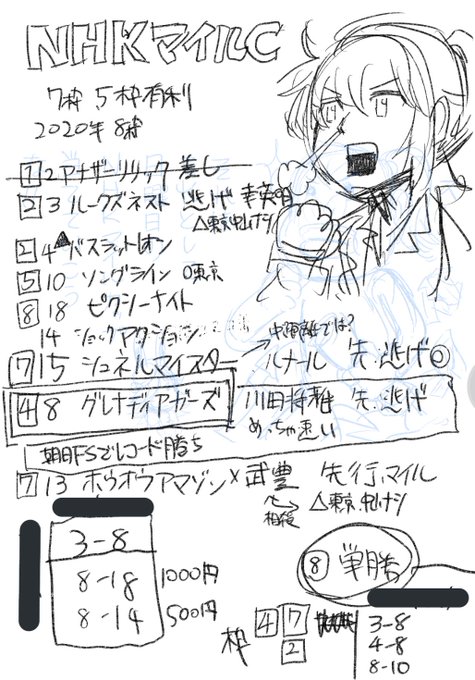 NHKマイルC
7枠 5枠有利
2020年 8枠
1 2 アナザーリリック 差し
2 3 ルークズネスト 逃げ 幸英明
△東京 中山ナシ
2 4 ▲バスラットレオン
5 10 ソングライン ○東京
8 18 ピクシーナイト
14 ショックアクション
7 15 シュネルマイスター
中距離では?
ルメール 先.逃げ◎
4 8 グレナディアガーズ 川田将雅 先.逃げ
めっちゃ速い
朝日FSでレコード勝ち
7 13 ホウオウアマゾン × 武豊 先行.マイル
相殺
△東京.中山ナシ
3-8
8-18 1000円
8-14 500円
⑧ 単勝
枠 4 7
2
3-8
4-8
8-10